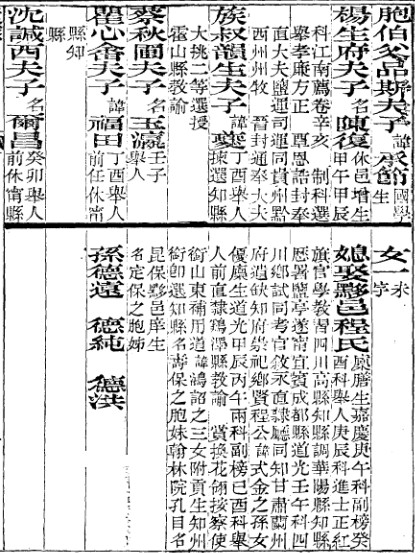 胞伯父品斯夫子諱承節國學生
楊生府夫子名陳復休邑增生甲午甲辰
科江南薦卷辛亥 制科選
舉孝廉方正 覃恩誥封奉
直大夫鹽運司運同貴州黔
西州州牧 晉封通奉大夫
族叔韻生夫子諱夔丁酉舉人揀選知縣
大挑二等選授
霍山縣教諭
蔡秋圃夫子名玉瀛壬子舉人
瞿心香夫子諱福田丁酉舉人前任休甯
縣知
縣
沈誠西夫子名爾昌癸卯舉人前休甯縣
女一未字
媳娶黟邑程氏原廩生嘉慶庚午科副榜癸酉科舉人庚辰科進士正紅
旗官學教習四川高縣知縣調華陽縣知縣
歷署鹽亭遂甯宜賓成都縣道光壬午科四
川鄉試同考官敘永直隸廳同知甘肅蘭州
府遺缺知府崇祀鄉賢程公諱式金之孫女
優廩生道光甲辰丙午兩科副榜己酉科舉
人前直隸雞澤縣教諭 賞換花翎按察使
銜山東補用道諱鴻詔之三女附貢生知州
銜卽選知縣名壽保之胞妹翰林院孔目名
昆保黟邑庠生
名定保之胞姊
孫德遠 德純 德洪